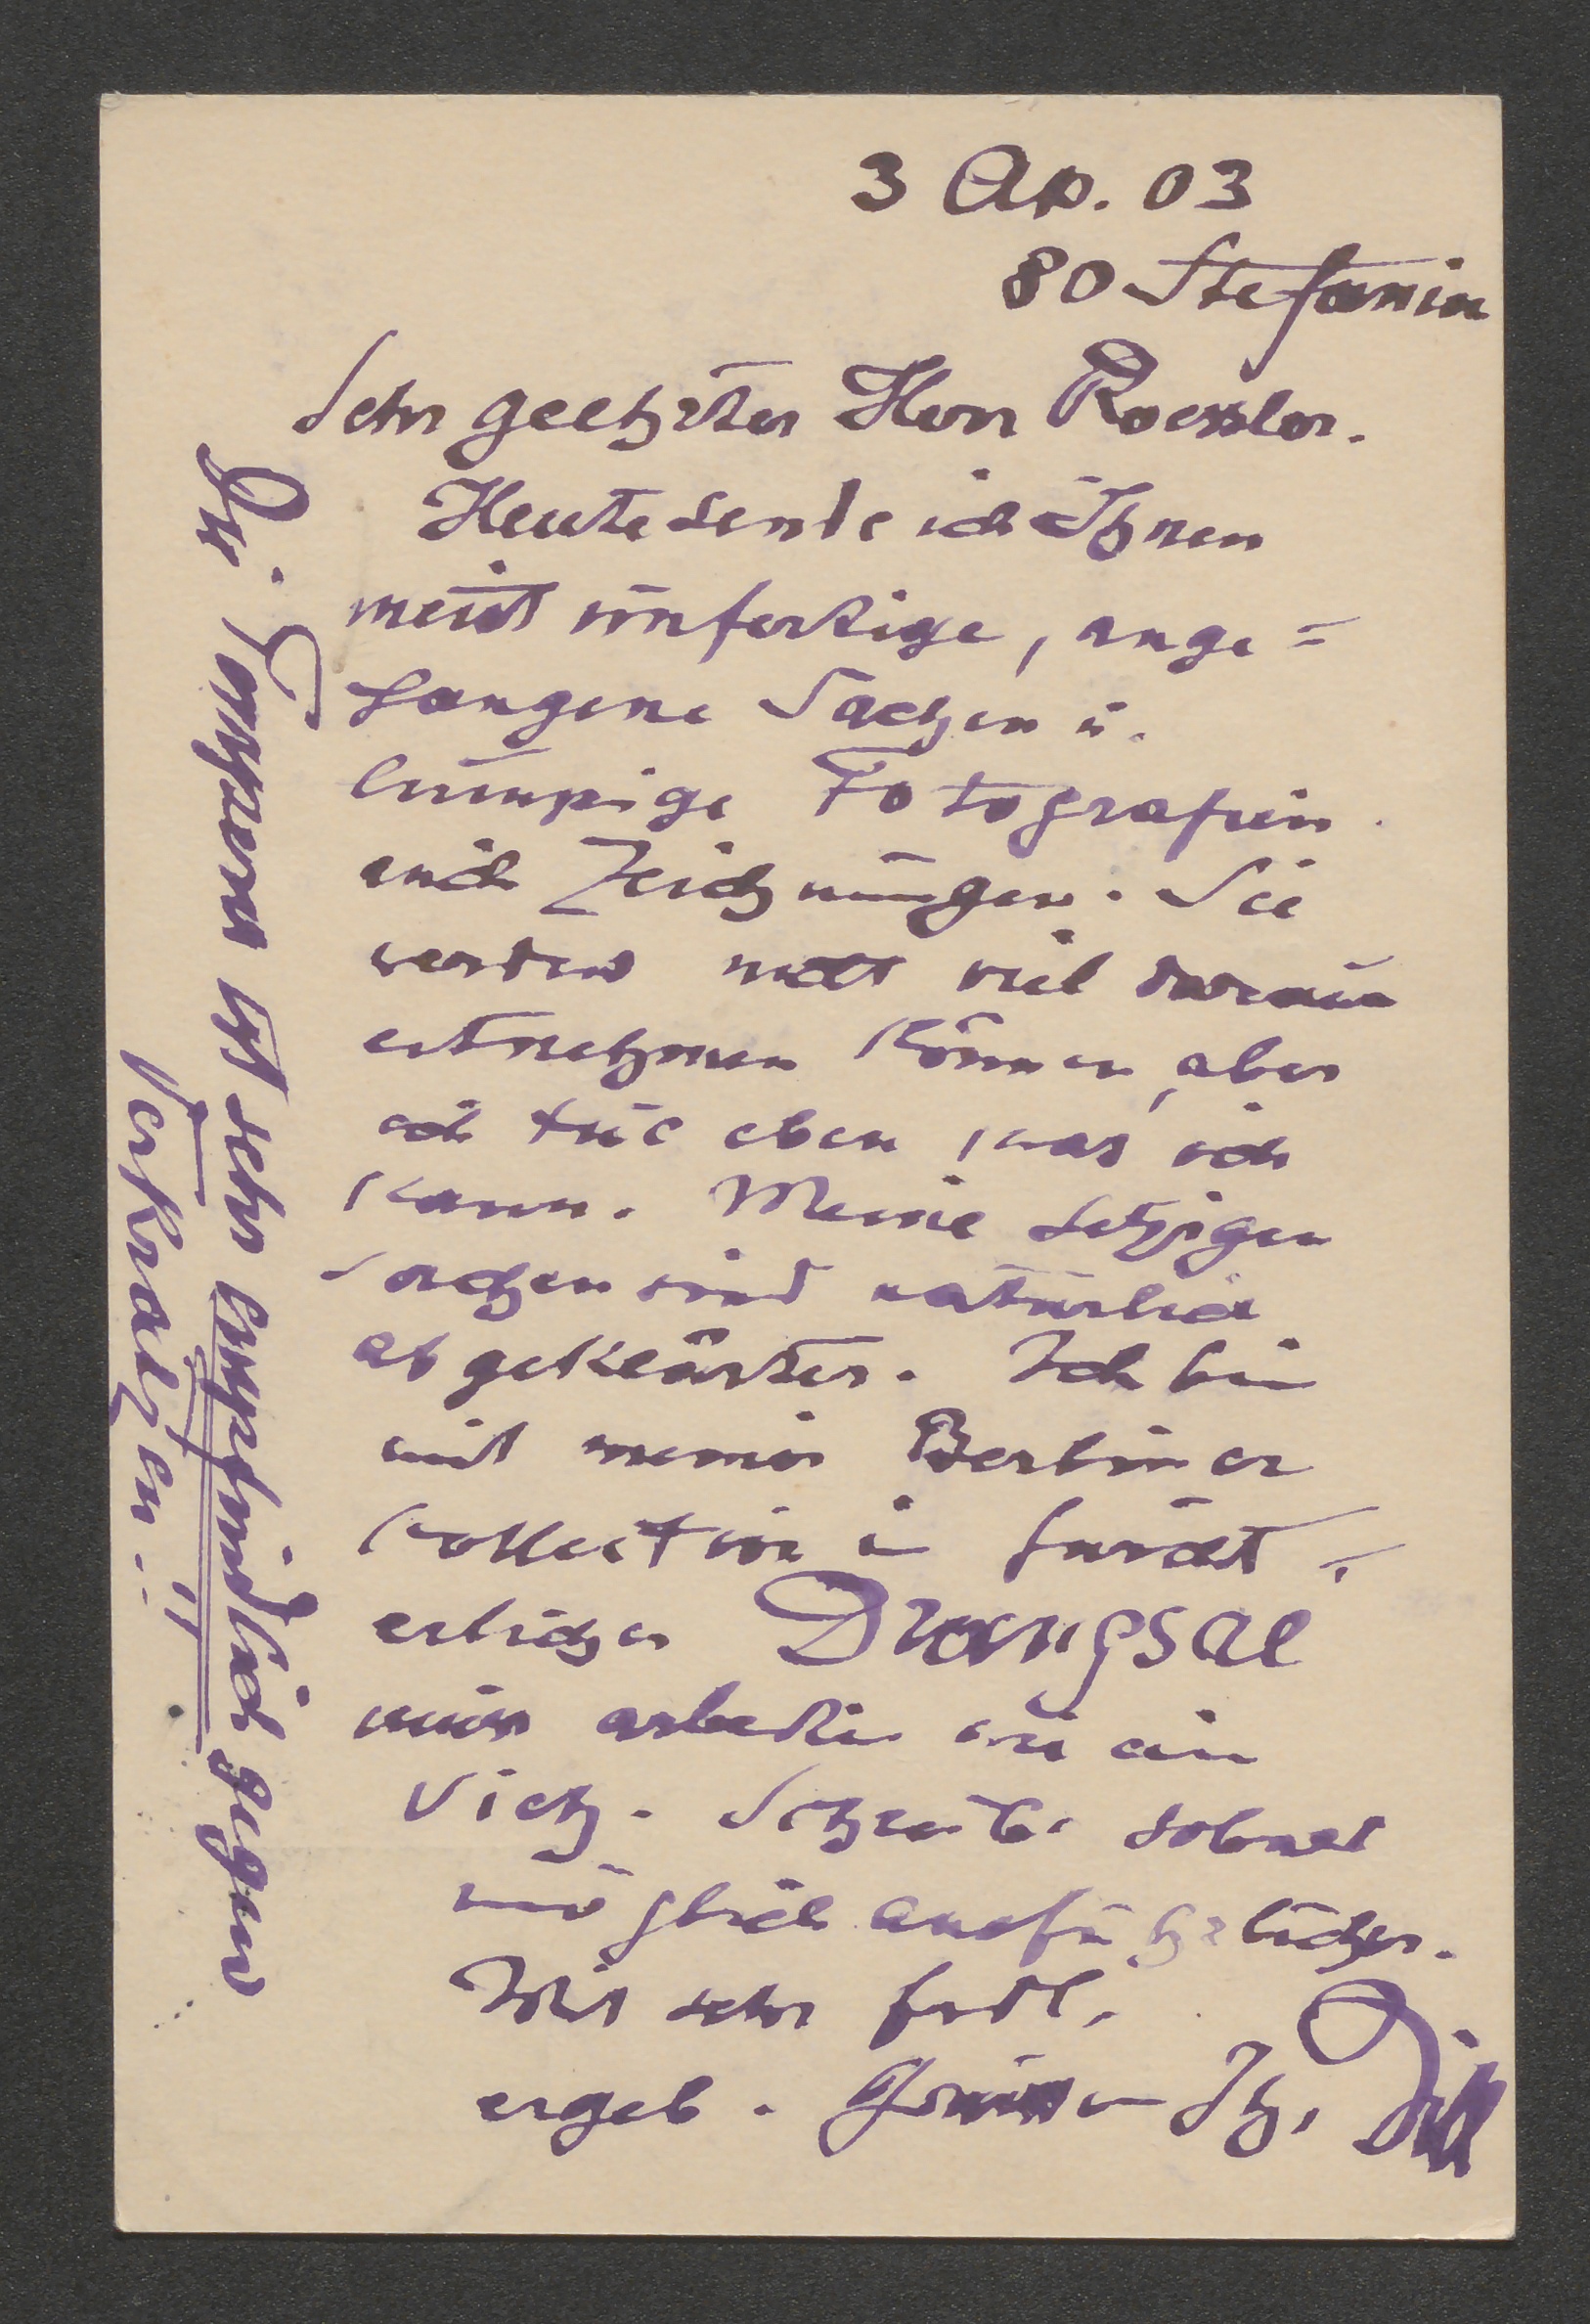 3 Ap. 03
80 Stefanien
Sehr geehrter Herr Roessler.
Heute sende ich Ihnen
meist unfertige, ange=
fangene Sachen u.
lumpige Fotografien
und Zeichnungen. Sie
werden nicht viel daraus
entnehmen können, aber
ich tue eben was ich
kann. Meine hetzigen
Sachen sind natürlich
abgeklärter. Ich bin
mit meiner Berliner
Kollection in fürcht=
erlicher Drangsal
muss arbeiten wie ein
Vieh. Schreibe sobald
möglich ausführlicher.
Mit sehr frdl.
ergeb. Grüssen Ih. Dill
Die Tempera ist sehr empfindlich gegen
Verkratzen..!!